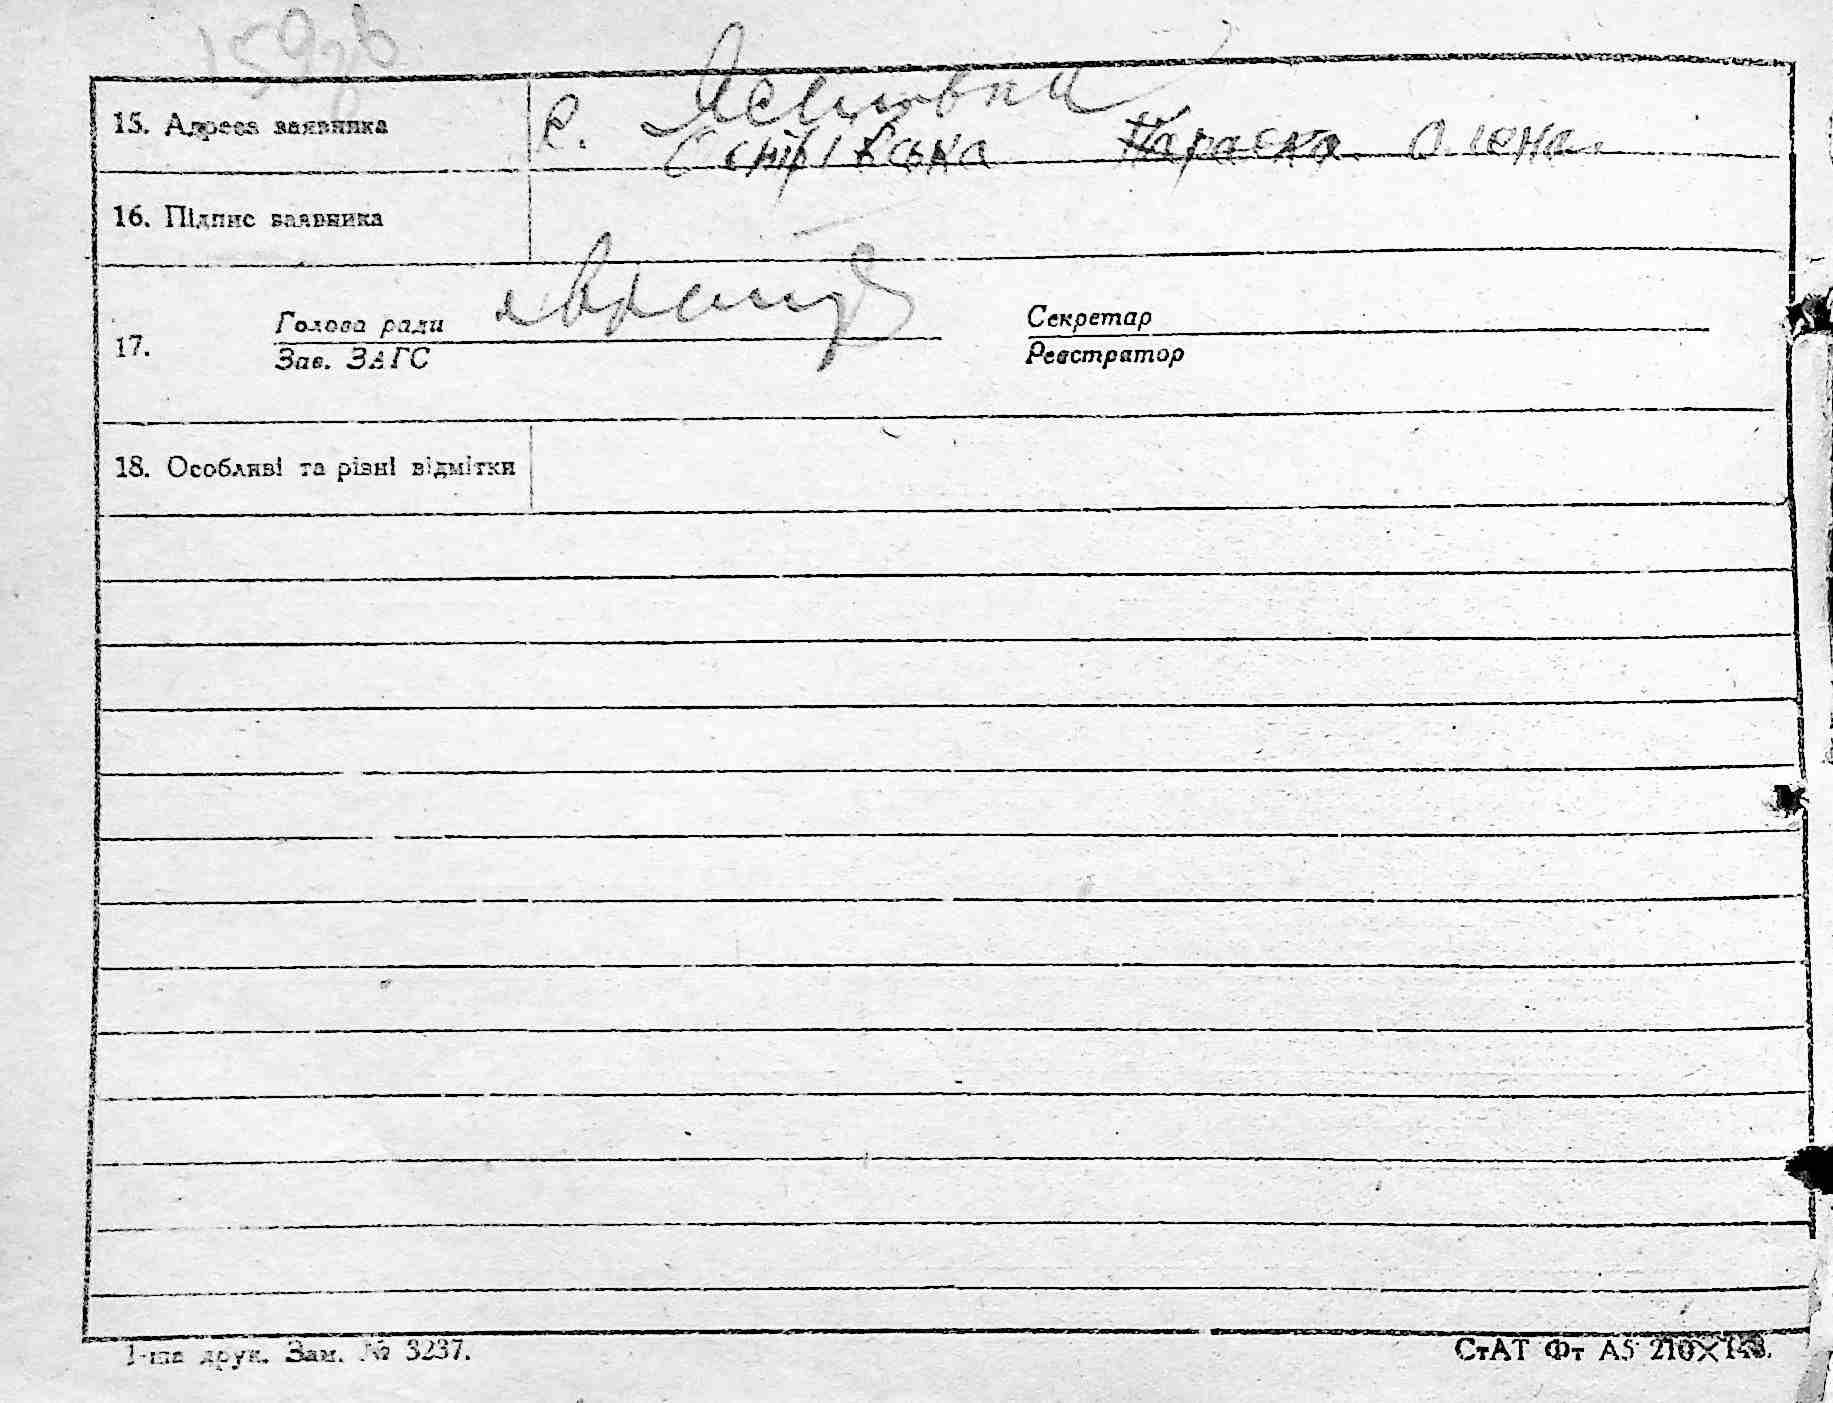 159
15. Адреса заявника
с. Ясенівка
Снірівська Параска Олена.
16. Підпис заявника
17.
Голова ради
Зав. ЗАГС
Секретар
Реєстратор
18. Особливі та різні відмітки
1-ша друк. Зам. № 3237.
СтАТ Фт А5 210×148.